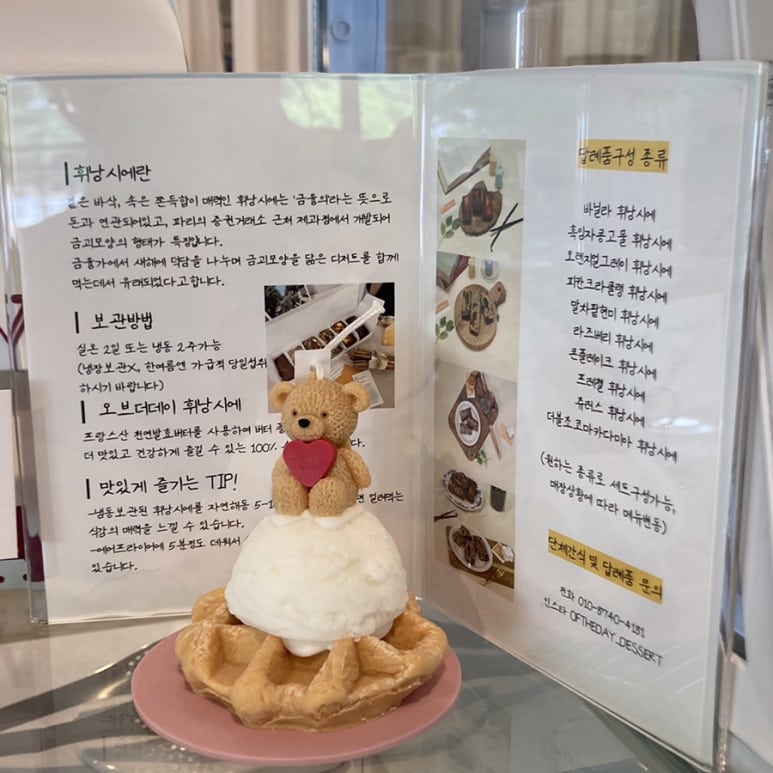 휘낭시에란
겉은 바삭, 속은 쫀득함이 매력인 휘낭시에는 '금융의'라는 뜻으로
돈과 연관되어있고, 파리의 증권거래소 근처 제과점에서 개발되어
금괴모양의 형태가 특징입니다.
금융가에서 새해에 덕담을 나누며 금괴모양을 닮은 디저트를 함께
먹는데서 유래되었다고합니다.
보관방법
실온 2일 또는 냉동 2주가능
(냉장보관X, 한여름엔 가급적 당일섭취
하시기 바랍니다)
오브더데이 휘낭시에
프랑스산 천연발효버터를 사용하여 버터
더 맛있고 건강하게 즐길 수 있는 100%
맛있게 즐기는 TIP!
-냉동보관된 휘낭시에를 자연해동 5-1 면 얼려먹는
식감의 매력을 느낄 수 있습니다.
-에어프라이어에 5분정도 데워서
있습니다.
답례품구성 종류
바닐라 휘낭시에
흑임자콩고물 휘낭시에
오렌지얼그레이 휘낭시에
피칸크라클랭 휘낭시에
말차팥현미 휘낭시에
라즈베리 휘낭시에
콘플레이크 휘낭시에
프레첼 휘낭시에
츄러스 휘낭시에
더블초코마카다미아 휘낭시에
(원하는 종류로 세트구성가능,
매장상황에 따라 메뉴변동)
단체간식 및 답례품 문의
전화 010-8740-4181
인스타 OFTHEDAY_DESSERT